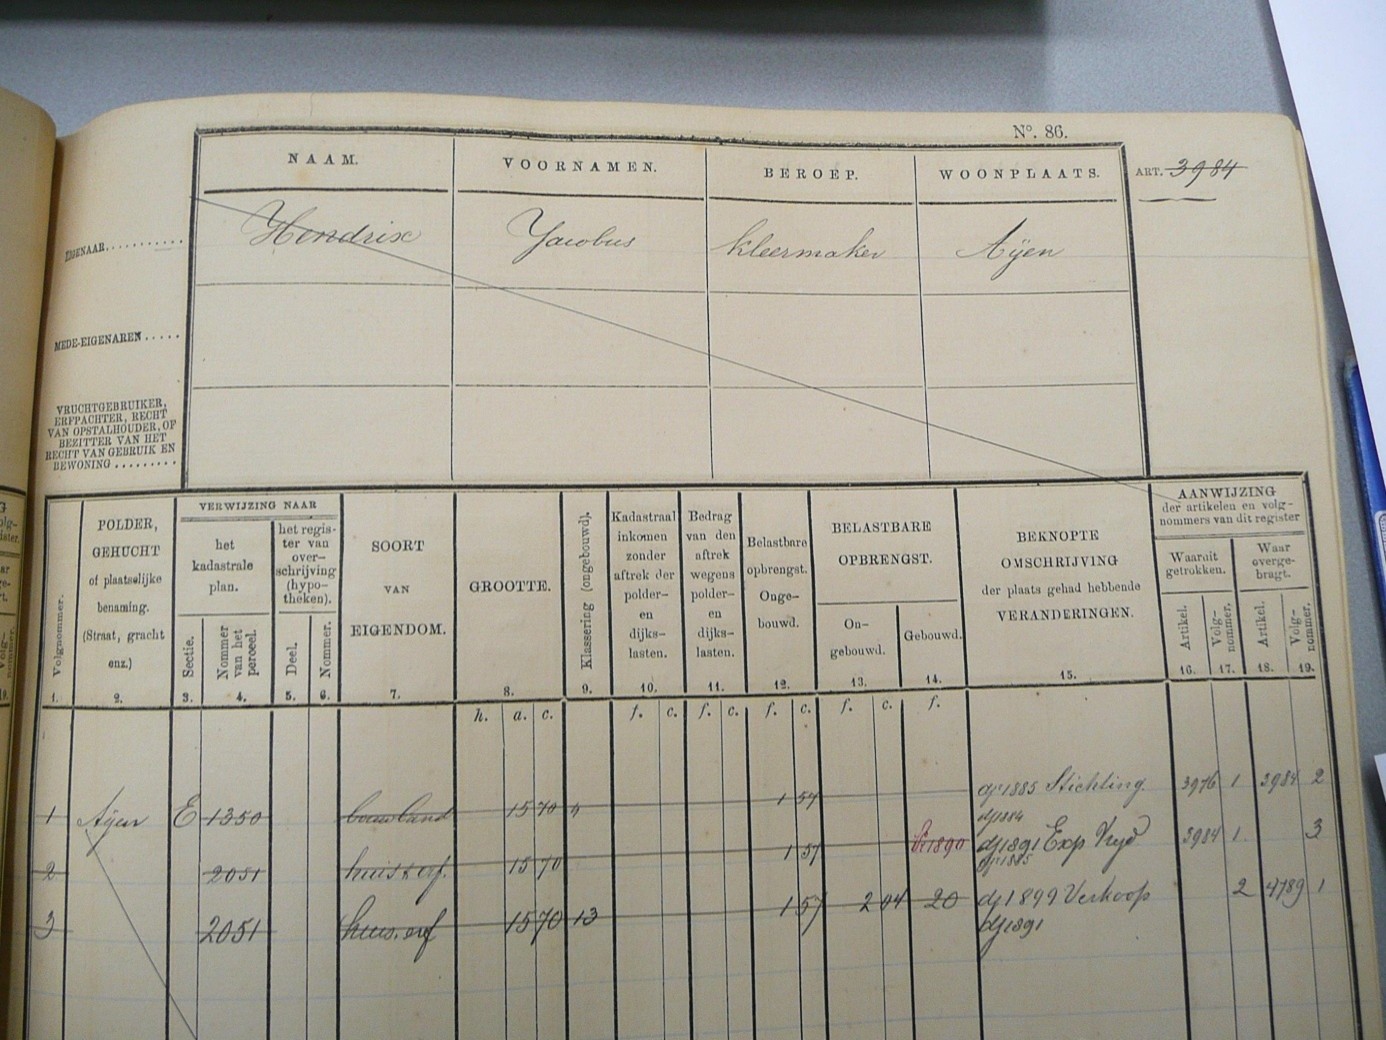 N°. 86.
NAAM. VOORNAMEN. BEROEP. WOONPLAATS. ART. 3984
EIGENAAR........... Hendrix Jacobus kleermaker Aÿen
MEDE-EIGENAREN.....
VRUCHTGEBRUIKER,
ERFPACHTER, RECHT
VAN OPSTALHOUDER, OF
BEZITTER VAN HET
RECHT VAN GEBRUIK EN
BEWONING.........
Volgnommer.
1.
POLDER,
GEHUCHT
of plaatselijke
benaming.
(Straat, gracht
enz.)
2.
VERWIJZING NAAR
het
kadastrale
plan.
Sectie.
3.
Nommer
van het
perceel.
4.
het regis-
ter van
over-
schrijving
(hypo-
theken).
Deel.
5.
Nommer.
6.
SOORT
VAN
EIGENDOM.
7.
GROOTTE.
8.
h. a. c.
Klasseering (ongebouwd).
9.
Kadastraal
inkomen
zonder
aftrek der
polder-
en
dijks-
lasten.
10.
f. c.
Bedrag
van den
aftrek
wegens
polder-
en
dijks-
lasten.
11.
f. c.
Belastbare
opbrengst.
Onge-
bouwd.
12.
f. c.
BELASTBARE
OPBRENGST.
On-
gebouwd.
13.
f. c.
Gebouwd.
14.
f.
BEKNOPTE
OMSCHRIJVING
der plaats gehad hebbende
VERANDERINGEN.
15.
AANWIJZING
der artikelen en volg-
nommers van dit register
Waaruit
getrokken.
Artikel.
16.
Volg-
nommer.
17.
Waar
overge-
bragt.
Artikel.
18.
Volg-
nommer.
19.
1 Aÿen E 1350 bouwland 15 70 4 1 57 dj 1885 Stichting 3976 1 3984 2
dj 1884
2 2051 huis & erf. 15 70 1 57 1890 dj 1891 Exp Vrijd 3984 1 3
dj 1885
3 2051 huis, erf 15 70 13 1 57 2 04 20 dj 1899 Verkoop 2 4789 1
dj 1891